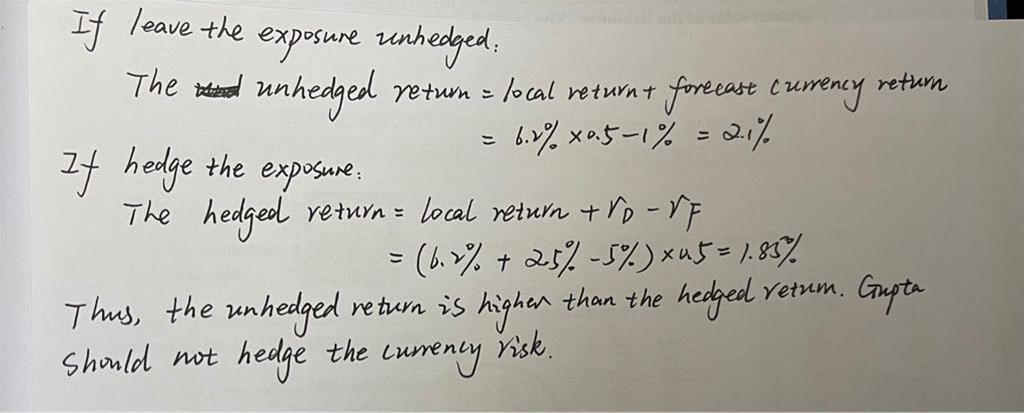 If leave the exposure unhedged:
The unhedged return = local return + forecast currency return
= 6.2% × 0.5 - 1% = 2.1%
If hedge the exposure:
The hedged return = local return + rD - rF
= (6.2% + 2.5% - 5%) × 0.5 = 1.85%
Thus, the unhedged return is higher than the hedged return. Gupta
should not hedge the currency risk.